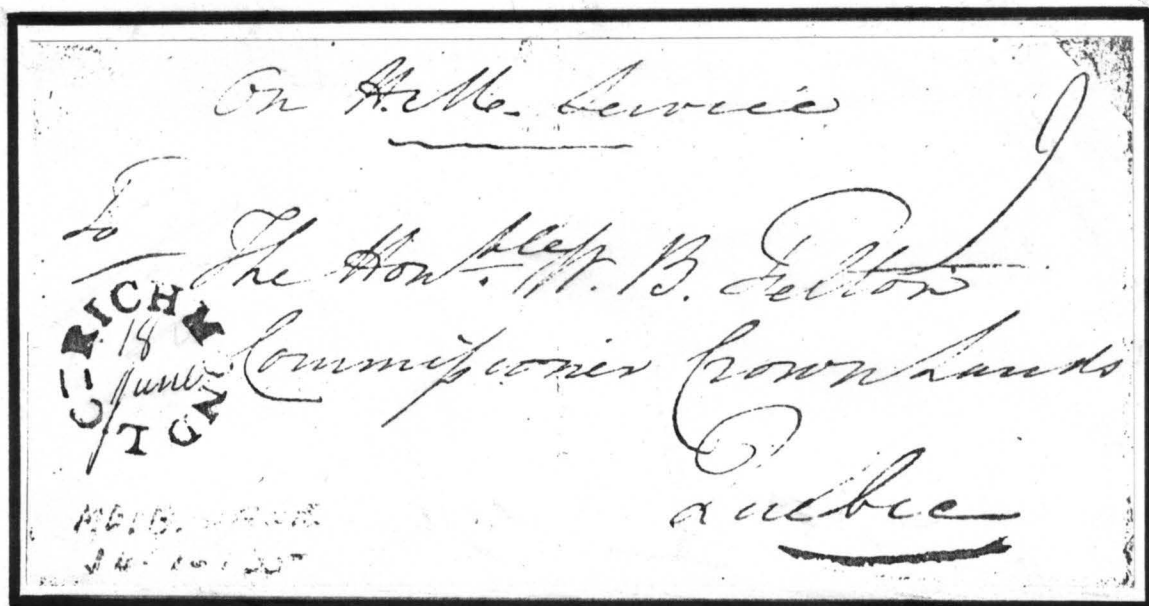 On H.M. Service
To
The Honble. W. B. Felton
Commissioner Crown Lands
Quebec
RICHMOND L-C
18
June